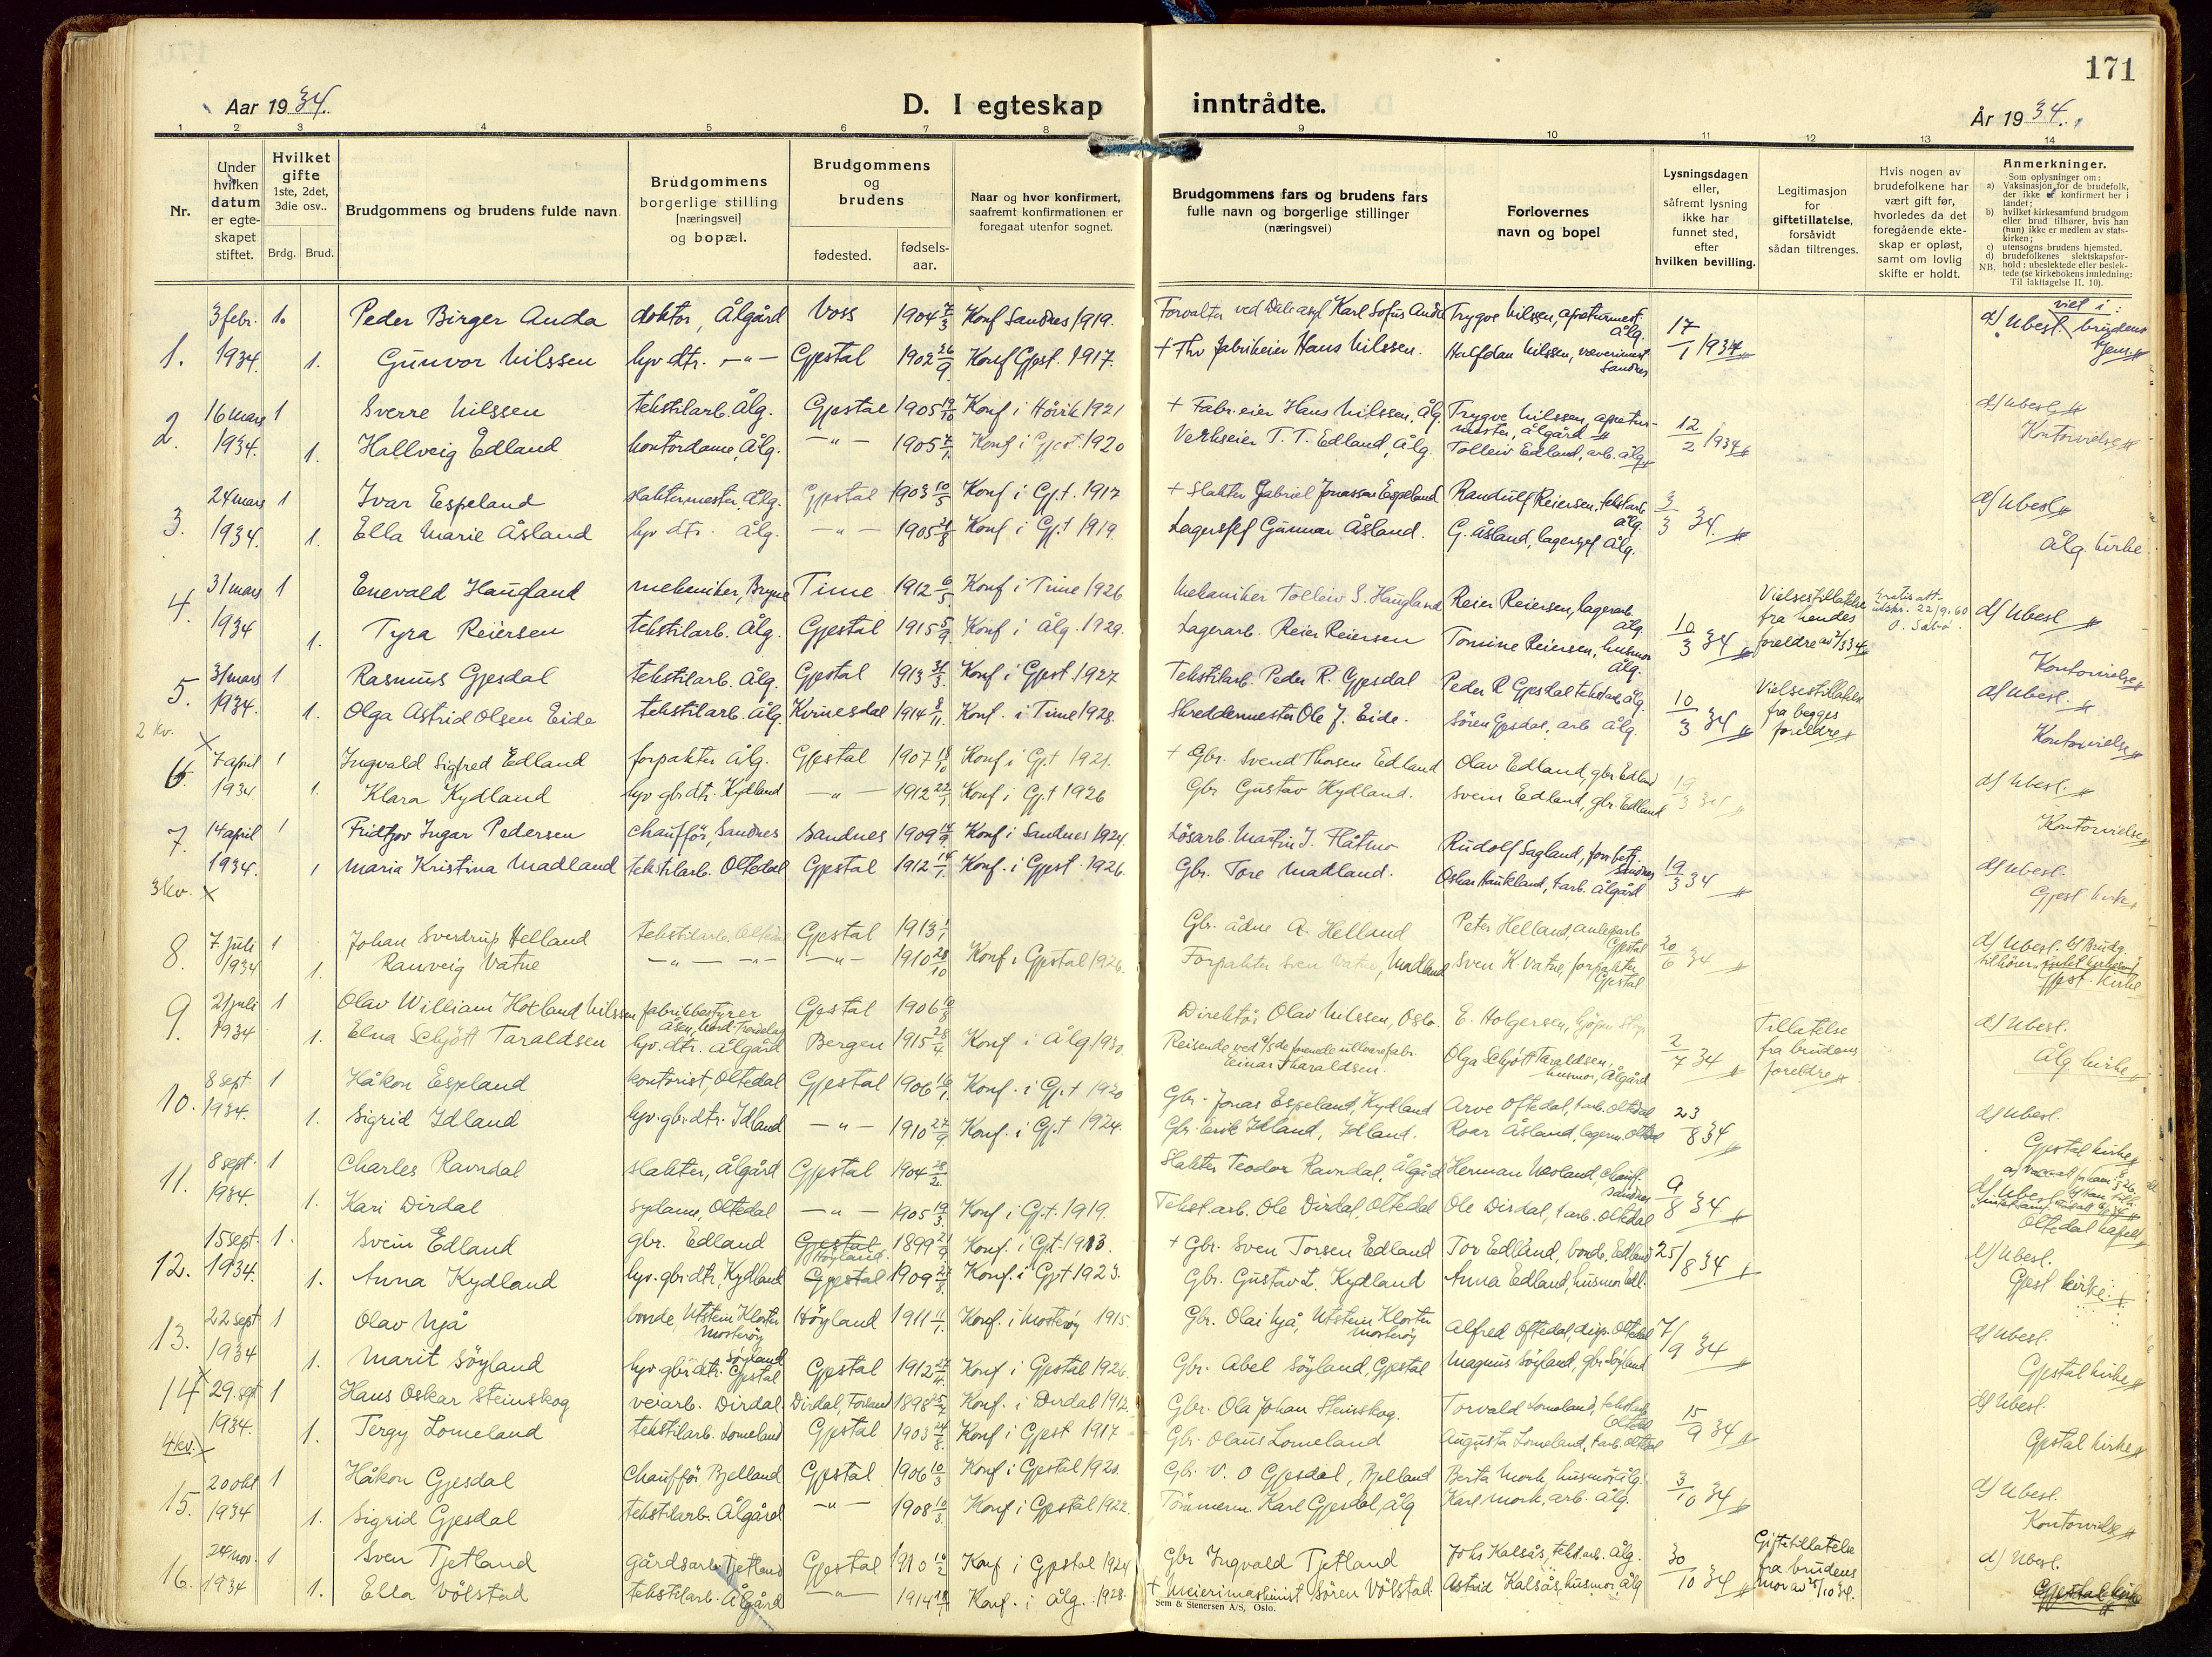 171
Aar 1934.
D. I egteskap inntrådte.
År 1934.
1 2 3 4 5 6 7 8 9 10 11 12 13 14
Nr.
Under hvilken datum er egteskapet stiftet.
Hvilket gifte 1ste, 2det, 3die osv..
Brdg. Brud.
Brudgommens og brudens fulde navn
Brudgommens borgerlige stilling [næringsvei] og bopæl.
Brudgommens og brudens
fødested. fødselsaar.
Naar og hvor konfirmert, saafremt konfirmationen er foregaat utenfor sognet.
Brudgommens fars og brudens fars fulle navn og borgerlige stillinger (næringsvei)
Forlovernes navn og bopel
Lysningsdagen eller, såfremt lysning ikke har funnet sted, efter hvilken bevilling.
Legitimasjon for giftetillatelse, forsåvidt sådan tiltrenges.
Hvis nogen av brudefolkene har vært gift før, hvorledes da det foregående ekteskap er opløst, samt om lovlig skifte er holdt.
Anmerkninger.
Som oplysninger om:
a) Vaksinasjon for de brudefolk, der ikke er konfirmert her i landet;
b) hvilket kirkesamfund brudgom eller brud tilhører, hvis han (hun) ikke er medlem av statskirken;
c) utensogns brudens hjemsted.
d) brudefolkenes slektskapsforhold: ubeslektede eller beslektede (se kirkebokens innledning: Til iakttagelse II. 10).
NB.
1. 3 febr. 1. Peder Birger Anda doktor, Ålgård Voss 1904 7/3 Konf Sandnes 1919. Forvalter ved Dale asyl Karl Sofus Anda Trygve Nilssen, apreturmest. Ålg. 17/1 1934 d/ Ubesl. viet i: brudens hjem
1934. 1. Gunvor Nilssen hjv dtr. -"- Gjestal 1902 26/9 Konf Gjest. 1917. + Thv fabrikeier Hans Nilssen. Halfdan Nilssen, væverimest. Sandnes
2. 16 mars 1 Sverre Nilssen tekstilarb. Ålg. Gjestal 1905 19/10 Konf i Høvik 1921 + Fabr.eier Hans Nilssen, Ålg. Trygve Nilssen, apreturmester, Ålgård 12/2 1934 d/ Ubesl.
1934. 1. Hallveig Edland kontordame, Ålg. -"- 1905 7/1 Konf i Gjest. 1920 Verkseier T. T. Edland, Ålg. Tolleiv Edland, arb. Ålg. Kontorvielse
3. 24 mars 1 Ivar Espeland slaktermester, Ålg. Gjestal 1903 10/5 Konf i Gj.t. 1917 + Slakter Gabriel Jonassen Espeland Randulf Reiersen, tekstarb. Ålg. 3/3 34. d/ Ubesl
1934. 1. Ella Marie Åsland hjv dtr. Ålg. -"- 1905 21/8 Konf i Gj.t 1919. Lagersjef Gunnar Åsland. G. Åsland, lagersjef Ålg. Ålg. kirke
4. 31 mars 1 Enevald Haugland mekaniker, Bryne Time 1912 6/5 Konf i Time 1926 Mekaniker Tolleiv S. Haugland Reier Reiersen, lagerarb. Ålg. 10/3 34 Vielsestillatelse fra hendes foreldre av 2/3 34 Gratis att. utskr. 22/9.60 d/ Ubesl
1934 1. Tyra Reiersen tekstilarb. Ålg. Gjestal 1915 5/9 Konf i Ålg. 1929. Lagerarb. Reier Reiersen Tomine Reiersen, husmor Ålg. Kontorvielse
5. 31 mars 1 Rasmus Gjesdal tekstilarb. Ålg. Gjestal 1913 31/3 Konf i Gjest. 1927 Tekstilarb. Peder R. Gjesdal Peder R Gjesdal tekstarb. Ålg. 10/3 34 Vielsestillatelse fra begges foreldre d/ Ubesl.
1934. 1. Olga Astrid Olsen Eide tekstilarb. Ålg. Kvinesdal 1914 8/11 Konf. i Time 1928. Skreddermester Ole J. Eide. Søren Gjesdal, arb Ålg. Kontorvielse
2 kv.
6. 7 april 1 Ingvald Sigfred Edland forpakter Ålg. Gjestal 1907 18/10 Konf i Gj.t 1921. + Gbr. Svend Thorsen Edland Olav Edland, gbr. Edland 19/3 34 d/ Ubesl.
1934 1. Klara Kydland hjv gbr.dtr. Kydland -"- 1912 22/1 Konf i Gj.t 1926 Gbr Gustav Kydland. Svein Edland, gbr. Edland Kontorvielse
7. 14 april 1 Fridtjov Ingar Pedersen chauffør, Sandnes Sandnes 1909 14/9 Konf i Sandnes 1924. Løsarb. Martin J. Flåtmo Rudolf Sagland, Sandnes 19/3 34 d/ Ubesl.
1934. 1 Maria Kristina Madland tekstilarb. Oltedal Gjestal 1912 14/1 Konf. i Gjest. 1926. Gbr. Tore Madland. Oskar Haukland, t.arb. Ålgård Gjest kirke
3 kv.
8. 7. juli 1 Johan Sverdrup Helland tekstilarb. Oltedal Gjestal 1913 1/1 Gbr. Ådne A. Helland Peter Helland, anlegsarb Gjestal 20/6 34 d/ Ubesl. b/ Brudg. tilhører intet kirkesamf.
1934 1. Ranveig Vatne -"- -"- -"- 1910 28/10 Konf i Gjestal 1926. Forpakter Sven Vatne, Madland Sven K. Vatne, forpakter Gjestal Gjest. kirke
9. 21 juli 1 Olav William Hoxland Nilssen fabrikbestyrer Åsen, Nord-Trøndelag Gjestal 1906 10/8 Direktør Olav Nilssen, Oslo. E. Holgersen, 2/7 34 Tillatelse fra brudens foreldre d/ Ubesl.
1934 1. Elna Schjött Taraldsen hjv. dtr. Ålgård Bergen 1915 28/4 Konf i Ålg. 1930. Reisende ved a/s de forenede ullvarefabr. Einar Tharaldsen. Olga Schjött Taraldsen, husmor, Ålgård Ålg kirke
10. 8 sept 1 Håkon Espeland kontorist, Oltedal Gjestal 1906 16/1 Konf. i Gj.t 1920 Gbr. Jonas Espeland, Kydland Arve Oftedal, t.arb. Oltedal 23/8 34 d/ Ubesl.
1934. 1. Sigrid Idland hjv. gbr.dtr. Idland -"- 1910 27/9 Konf. i Gj.t 1924. Gbr. Erik Idland, Idland. Roar Åsland, lagerm. Oltedal Gjestal kirke
11. 8 sept. 1 Charles Ravndal slakter, Ålgård Gjestal 1904 28/2. Slakter Teodor Ravndal, Ålgård Herman Næsland, chauff. Sandnes 9/8 34. d/ Ubesl.
1934. 1. Kari Dirdal sydame, Oltedal -"- 1905 19/3. Konf i Gj.t. 1919. Tekst.arb. Ole Dirdal, Oltedal Ole Dirdal, t.arb. Oltedal Oltedal kapell
12. 15 sept. 1. Svein Edland gbr. Edland Gjestal Høyland 1899 21/9 Konf. i Gj.t. 1913. + Gbr. Sven Torsen Edland Tor Edland, bonde, Edland 25/8 34 d/ Ubesl.
1934. 1. Anna Kydland hjv. gbr.dtr. Kydland Gjestal 1909 27/8. Konf. i Gjt 1923. Gbr. Gustav L. Kydland Anna Edland, husmor Edl. Gjest kirke
13. 22 sept 1 Olav Njå bonde Utstein Kloster Mosterøy Høyland 1911 11/1. Konf. i Mosterøy 1915. Gbr. Olai Njå, Utstein Kloster Mosterøy Alfred Oftedal, disp. Oltedal 7/9 34 d/ Ubesl.
1934 1. Marit Søyland hjv. gbr.dtr. Søyland Gjestal Gjestal 1912 27/4. Konf i Gjestal 1926. Gbr. Abel Søyland, Gjestal Magnus Søyland, gbr. Søyland Gjestal kirke
14 29. sept 1 Hans Oskar Steinskog veiarb. Dirdal Dirdal, Forsand 1898 25/7 Konf. i Dirdal 1912. Gbr. Ola Johan Steinskog. Torvald Lomeland, tekstarb Oltedal 15/9 34 d/ Ubesl.
1934. 1. Tergy Lomeland tekstilarb. Lomeland Gjestal 1903 24/8. Konf i Gjest 1917 Gbr. Olaus Lomeland Augusta Lomeland, t.arb. Oltedal Gjestal kirke
4 kv.
15. 20 okt 1 Håkon Gjesdal Chauffør Bjelland Gjestal 1906 10/3 Konf i Gjestal 1920. Gbr. V. O Gjesdal, Bjelland Berta Mork, husmor Ålg. 3/10 34 d/ Ubesl.
1934 1. Sigrid Gjesdal tekstilarb. Ålgård -"- 1908 10/3. Konf i Gjestal 1922. Tømmerm. Karl Gjesdal, Ålg Karl Mork, arb. Ålg. Kontorvielse
16. 24 nov. 1 Sven Tjetland gårdsarb. Tjetland Gjestal 1910 10/2 Konf i Gjestal 1924 Gbr Ingvald Tjetland Johs Kalsås, tekst.arb. Ålg. 30/10 34 Giftetillatelse fra brudens mor av 25/10 34. d/ Ubesl.
1934 1. Ella Vølstad tekstilarb. Ålgård -"- 1914 18/1 Konf. i Ålg. 1928. + Meierimaskinist Søren Vølstad. Astrid Kalsås, husmor Ålg Gjestal kirke
Sem & Stenersen A/S, Oslo.